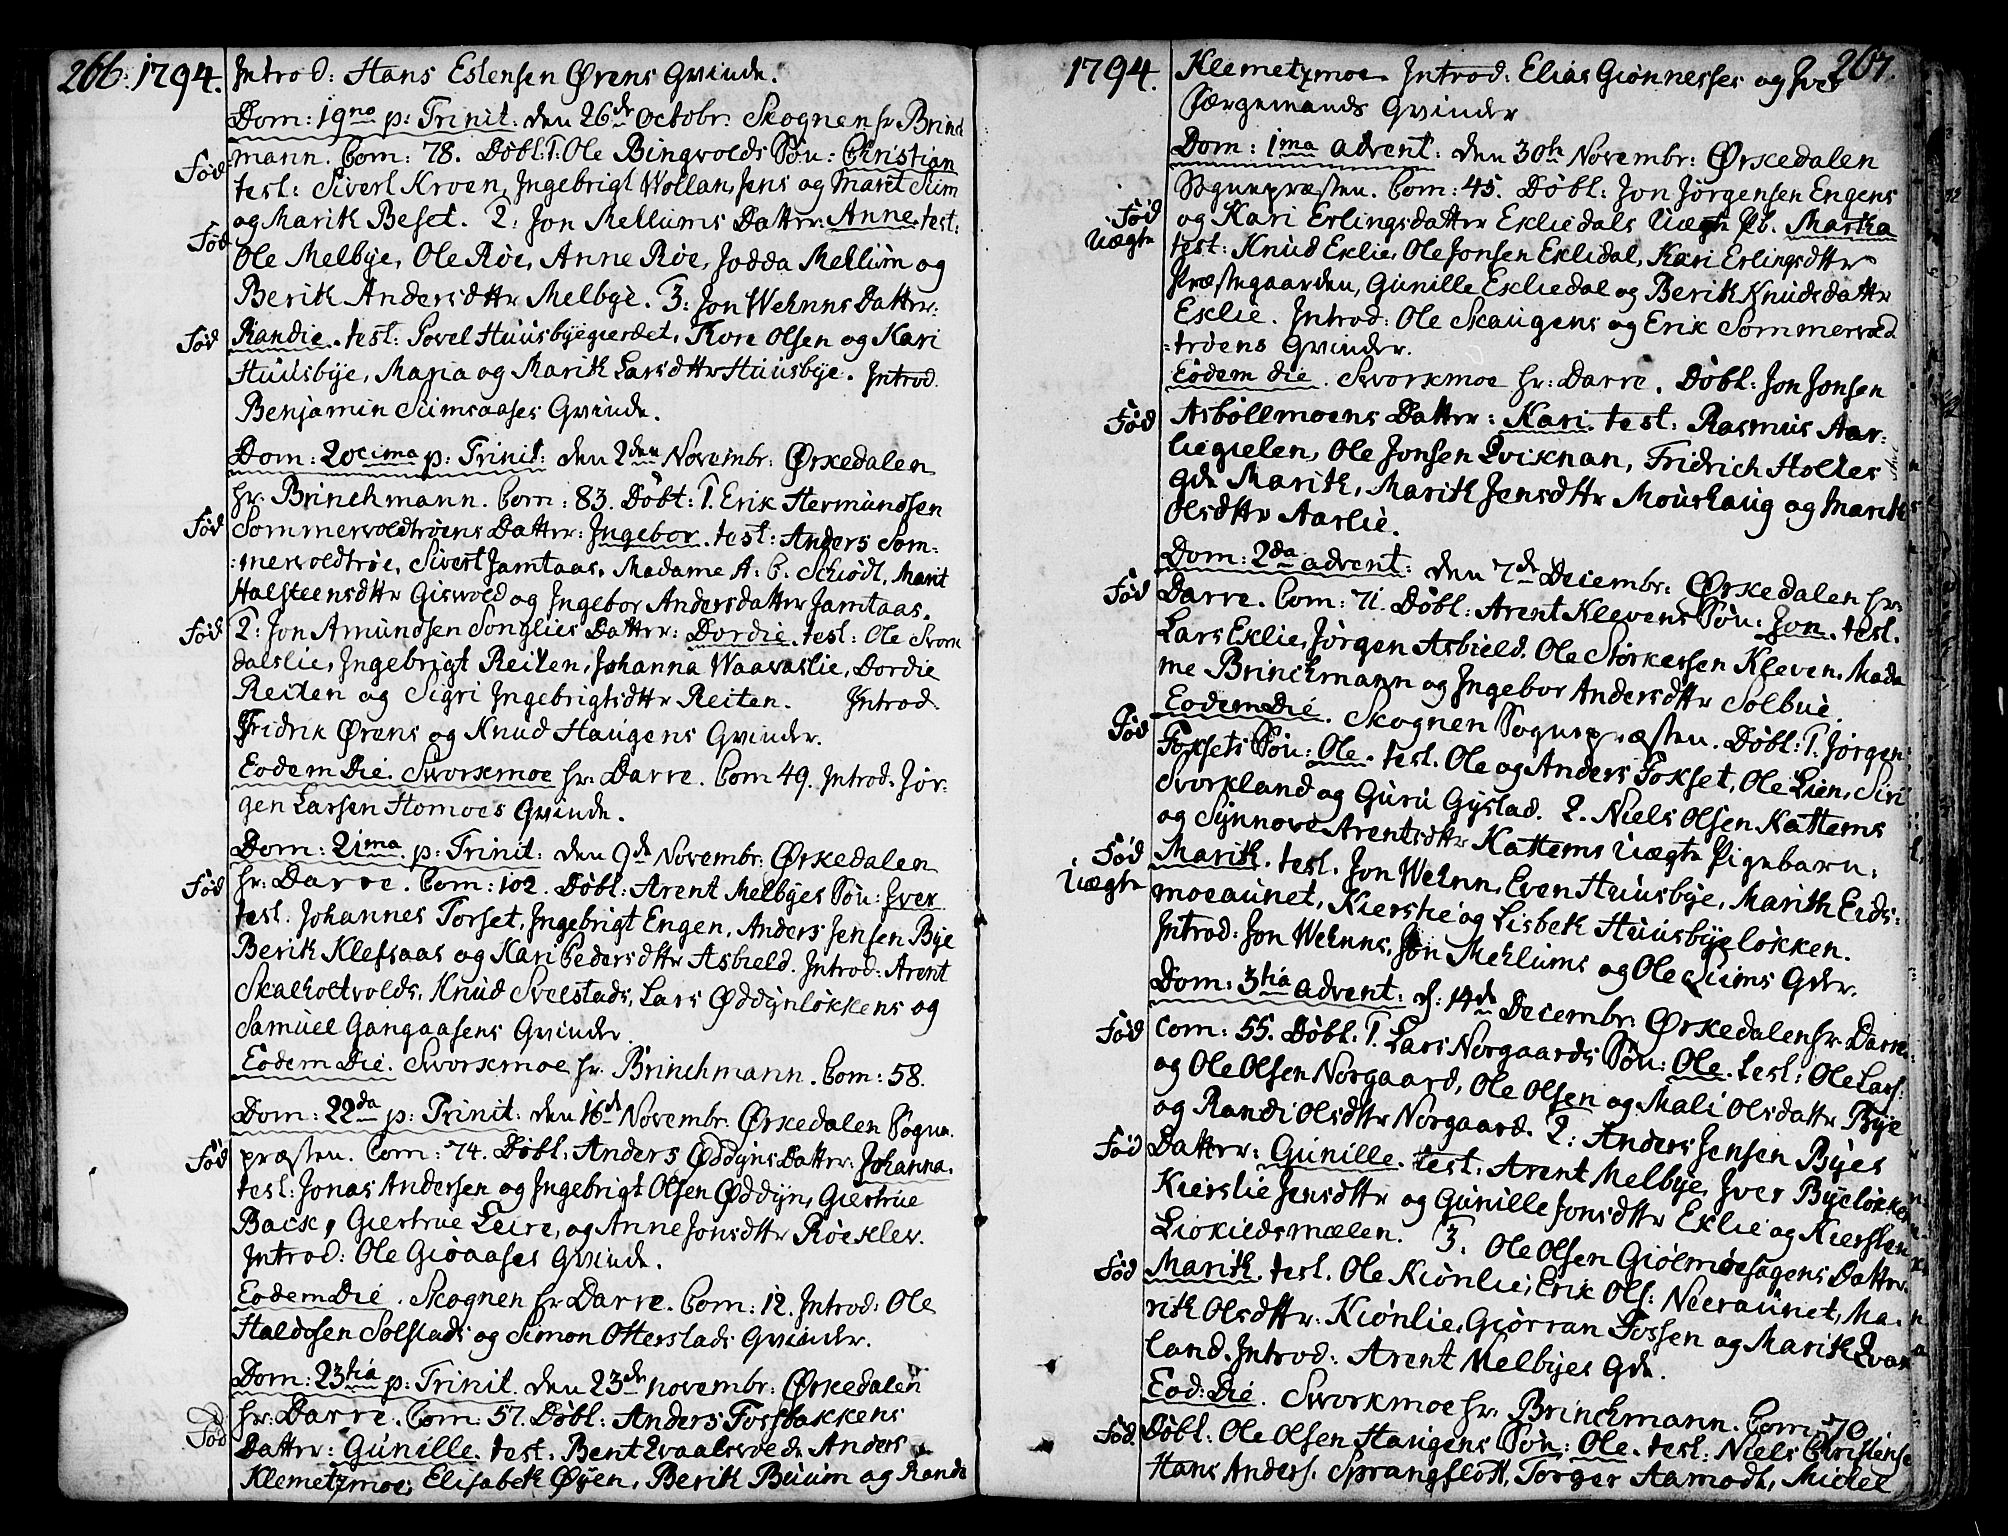 266. 1794. Introd: Hans Estensen Ørens Qvinde.
Dom: 19na p: Trinit: den 26de Octobr. Skognen hr Brinch
mann. Com: 78. Døbt: 1. Ole Bingvolds Søn: Christian
Fød test: Sivert Kroen, Ingebrigt Wollan, Jens og Marit Siim
og Marith Beset. 2: Jon Mellums Datter: Anne. test:
Fød Ole Melbye, Ole Røe, Anne Røe, Jodda Mellum og
Berith Andersdttr Melbye. 3: Jon Wehnns Datter:
Fød Randie. test: Povel Huusbyegierdet, Tore Olsen og Kari
Huusbye, Maria og Marith Larsdttr Huusbye. Introd.
Benjamin Siimsaases Qvinde.
Dom: 20cima p: Trinit: den 2den Novembr: Ørkedalen
hr. Brinchmann. Com: 83. Døbt: 1. Erik Hermundsen
Fød Sommervoldtrøens Datter: Ingebor. test: Anders Som:
:mervoldtrøe, Sivert Jamtaas, Madame A. C. Schiødt, Marit
Halsteensdttr Giswold og Ingebor Andersdatter Jamtaas.
Fød 2: Jon Amundsen Songlies Datter: Dordie. test: Ole Svor
dalslie, Ingebrigt Reiten, Johanna Waavaslie, Dordie
Reiten og Sigri Ingebrigtsdttr Reiten. Introd.
Fridrik Ørens og Knud Haugens Qvinder.
Eodem Die. Svorkmoe hr: Darre. Com 49. Introd. Jør-
gen Larsen Homoes Qvinde.
Dom: 21ma p: Trinit: den 9de Novembr: Ørkedalen
hr: Darre. Com: 102. Døbt: Arent Melbyes Søn: Iver
Fød test. Johannes Forset, Ingebrigt Engen, Anders Jensen Bye
Berith Klefsaas og Kari Pedersdttr Asbield. Introd: Arent
Skalholtvolds, Knud Svelstads, Lars Øddynløkkens og
Samuel Gangaasens Qvinder.
Eodem Die. Svorkmoe hr. Brinchmann. Com: 58.
Dom: 22da p: Trinit: den 16de Novembr: Ørkedalen Sogne
Fød præsten. Com: 74. Døbt: Anders Øddyns Datter: Johanna.
test: Jonas Andersen og Ingebrigt Olsen Øddyn, Giertrue
Back, Giertrue Leire, og Anne Jonsdttr Røeklev.
Introd: Ole Giøaases Qvinde.
Eodem Die. Skognen hr Darre. Com: 12. Introd: Ole
Haldosen Solstads og Simon Otterstads Qvinder.
Dom: 23tia p: Trinit. den 23de novembr: Ørkedalen
hr: Darre. Com: 57. Døbt: Anders Fossbakkens
Fød Datter: Gunille. test: Bent Evaalsvolde Anders
Klemetzmoe, Elisabeth Øyen, Berith Buum og Rande
1794. Klemetzmoe. Introd: Elias Giønneses og Iver 267.
Færgemands Qvinder
Dom: 1ma advent: den 30te Novembr: Ørkedalen
Sognepræsten. Com: 45. Døbt: Jon Jørgensen Engens
Fød og Kari Erlingsdatter Ekliedals Uægte Pb. Martha
Uægte test: Knud Eklie, Ole Jonsen Eklidal, Kari Erlingsdttr
Præstegaarden, Gunille Ekliedal og Berith Knudsdattr
Eklie. Introd: Ole Skaugens og Erik Sommervold
:trøens Qvinder.
Eodem die. Svorkmoe hr: Darre. Døbt: Jon Jonsen
Fød Asbøllmoens Datter: Kari. test: Rasmus Aar:
liegielen, Ole Jonsen Qviknan, Fridrich Holtes
Qde Marith, Marith Jensdttr Moushaug og Marith
Olsdttr Aarlie.
Dom: 2da advent: den 7de Decembr: Ørkedalen hr:
Fød Darre. Com: 71. Døbt: Arent Klevens Søn: Jon. test.
Lars Eklie, Jørgen Asbield. Ole Storkersen Kleven, Mada
me Brinchmann og Ingebor Andersdttr Solbue.
Eodem Die. Skognen Sognepræsten. Døbt: 1. Jørgen
Fød Foksets Søn: Ole. test. Ole og Anders Fokset, Ole Lien, Siri
Svorkland og Guru Gystad. 2. Niels Olsen Kattems
og Synnove Arentsdttr Kattems Uægte Pigebarn:
Fød Marith. test. Jon Wehnn, Even Huusbye, Marith Eids:
Uægte moeaunet, Kierstie og Lisbeth Huusbyeløkken.
Introd: Jon Wehnns, Jon Mehlums og Ole Siims Qder.
Dom: 3tia advent: d: 14de Decembr: Ørkedalen hr. Darre
Fød Com: 55. Døbt: 1. Lars Norgaards Søn: Ole. test: Ole Lars:
og Ole Olsen Norgaard, Ole Olsen og Mali Olsdattr Bye
og Randi Olsdttr Norgaard. 2: Anders Jensen Byes
Fød Datter: Gunille. test: Arent Melbye, Iver Byeløkken
Kierstie Jensdttr og Gunille Jonsdttr Eklie og Kiersten
Liokiedsmælen. 3. Ole Olsen Giølmøesagens Datter
Fød Marith. test. Ole Kiønlie, Erik Ols: Neeraunet, Ma-
rith Olsdttr: Kiønlie, Giørran Fossen og Marith Evar
land. Introd: Arent Melbyes Qde.
Eod: Die. Svorkmoe hr: Brinchmann. Com: 70.
Fød Døbt: Ole Olsen Haugens Søn: Ole. test: Niels Christense
Hans Anders: Sprangflott, Torger Aamodt, Michel